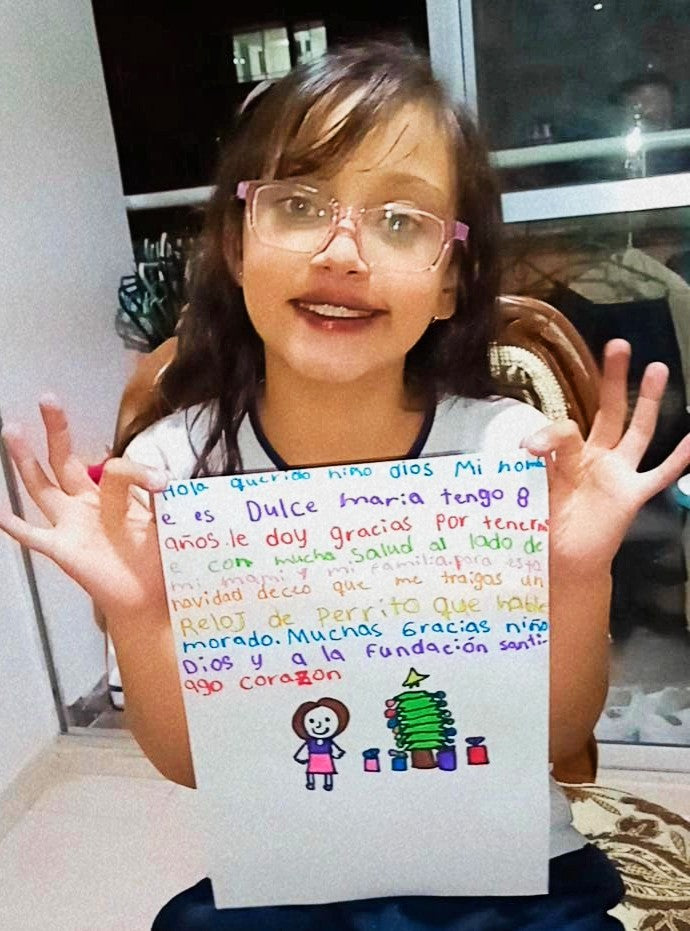 Hola querido niño dios Mi nom
e es Dulce maria tengo 8
años.le doy gracias por tenerm
e con mucha salud al lado de
mi mami y mi familia.para esta
navidad deceo que me traigas un
Reloj de perrito que hable
morado. Muchas Gracias niño
Dios y a la Fundación santi-
ago corazon